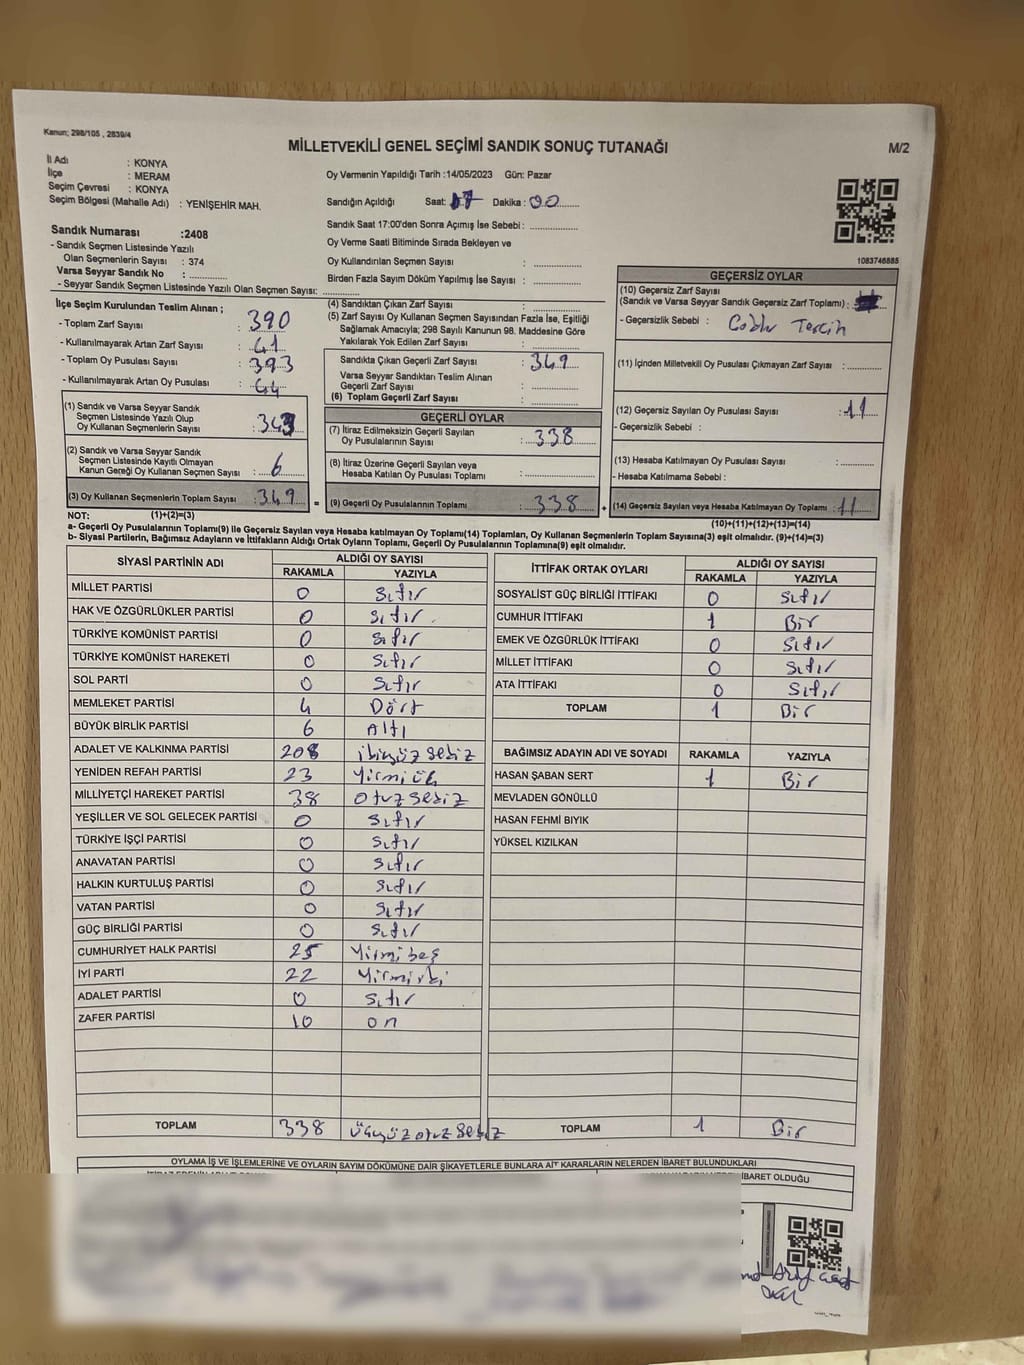 Kanun; 298/105 , 2839/4
MİLLETVEKİLİ GENEL SEÇİMİ SANDIK SONUÇ TUTANAĞI
M/2
İl Adı : KONYA
İlçe : MERAM
Seçim Çevresi : KONYA
Seçim Bölgesi (Mahalle Adı) : YENİŞEHİR MAH.
Oy Vermenin Yapıldığı Tarih :14/05/2023 Gün: Pazar
Sandığın Açıldığı Saat: 17 Dakika : 00
Sandık Saat 17:00'den Sonra Açımış İse Sebebi :
Oy Verme Saati Bitiminde Sırada Bekleyen ve
Oy Kullandırılan Seçmen Sayısı :
Birden Fazla Sayım Döküm Yapılmış İse Sayısı :
1083746885
Sandık Numarası :2408
- Sandık Seçmen Listesinde Yazılı
Olan Seçmenlerin Sayısı : 374
Varsa Seyyar Sandık No :
- Seyyar Sandık Seçmen Listesinde Yazılı Olan Seçmen Sayısı:
İlçe Seçim Kurulundan Teslim Alınan ;
- Toplam Zarf Sayısı : 390
- Kullanılmayarak Artan Zarf Sayısı : 41
- Toplam Oy Pusulası Sayısı : 393
- Kullanılmayarak Artan Oy Pusulası : 44
(1) Sandık ve Varsa Seyyar Sandık
Seçmen Listesinde Yazılı Olup
Oy Kullanan Seçmenlerin Sayısı : 343
(2) Sandık ve Varsa Seyyar Sandık
Seçmen Listesinde Kayıtlı Olmayan
Kanun Gereği Oy Kullanan Seçmen Sayısı : 6
(3) Oy Kullanan Seçmenlerin Toplam Sayısı : 349
(4) Sandıktan Çıkan Zarf Sayısı :
(5) Zarf Sayısı Oy Kullanan Seçmen Sayısından Fazla İse, Eşitliği
Sağlamak Amacıyla; 298 Sayılı Kanunun 98. Maddesine Göre
Yakılarak Yok Edilen Zarf Sayısı :
Sandıkta Çıkan Geçerli Zarf Sayısı : 349
Varsa Seyyar Sandıktan Teslim Alınan
Geçerli Zarf Sayısı :
(6) Toplam Geçerli Zarf Sayısı :
GEÇERLİ OYLAR
(7) İtiraz Edilmeksizin Geçerli Sayılan
Oy Pusulalarının Sayısı : 338
(8) İtiraz Üzerine Geçerli Sayılan veya
Hesaba Katılan Oy Pusulası Sayısı :
= (9) Geçerli Oy Pusulalarının Toplamı : 338 +
GEÇERSİZ OYLAR
(10) Geçersiz Zarf Sayısı
(Sandık ve Varsa Seyyar Sandık Geçersiz Zarf Toplamı) :
- Geçersizlik Sebebi : Çoklu Tercih
(11) İçinden Milletvekili Oy Pusulası Çıkmayan Zarf Sayısı :
(12) Geçersiz Sayılan Oy Pusulası Sayısı : 11
- Geçersizlik Sebebi :
(13) Hesaba Katılmayan Oy Pusulası Sayısı :
- Hesaba Katılmama Sebebi :
(14) Geçersiz Sayılan veya Hesaba Katılmayan Oy Toplamı : 11
NOT: (1)+(2)=(3) (10)+(11)+(12)+(13)=(14)
a- Geçerli Oy Pusulalarının Toplamı(9) ile Geçersiz Sayılan veya Hesaba katılmayan Oy Toplamı(14) Toplamları, Oy Kullanan Seçmenlerin Toplam Sayısına(3) eşit olmalıdır. (9)+(14)=(3)
b- Siyasi Partilerin, Bağımsız Adayların ve İttifakların Aldığı Ortak Oyların Toplamı, Geçerli Oy Pusulalarının Toplamına(9) eşit olmalıdır.
SİYASİ PARTİNİN ADI ALDIĞI OY SAYISI
RAKAMLA YAZIYLA
MİLLET PARTİSİ 0 Sıfır
HAK VE ÖZGÜRLÜKLER PARTİSİ 0 Sıfır
TÜRKİYE KOMÜNİST PARTİSİ 0 Sıfır
TÜRKİYE KOMÜNİST HAREKETİ 0 Sıfır
SOL PARTİ 0 Sıfır
MEMLEKET PARTİSİ 4 Dört
BÜYÜK BİRLİK PARTİSİ 6 Altı
ADALET VE KALKINMA PARTİSİ 208 ikiyüz sekiz
YENİDEN REFAH PARTİSİ 23 Yirmi üç
MİLLİYETÇİ HAREKET PARTİSİ 38 Otuz sekiz
YEŞİLLER VE SOL GELECEK PARTİSİ 0 Sıfır
TÜRKİYE İŞÇİ PARTİSİ 0 Sıfır
ANAVATAN PARTİSİ 0 Sıfır
HALKIN KURTULUŞ PARTİSİ 0 Sıfır
VATAN PARTİSİ 0 Sıfır
GÜÇ BİRLİĞİ PARTİSİ 0 Sıfır
CUMHURİYET HALK PARTİSİ 25 Yirmi beş
İYİ PARTİ 22 Yirmi iki
ADALET PARTİSİ 0 Sıfır
ZAFER PARTİSİ 10 on
TOPLAM 338 üçyüz otuz sekiz
İTTİFAK ORTAK OYLARI ALDIĞI OY SAYISI
RAKAMLA YAZIYLA
SOSYALİST GÜÇ BİRLİĞİ İTTİFAKI 0 Sıfır
CUMHUR İTTİFAKI 1 Bir
EMEK VE ÖZGÜRLÜK İTTİFAKI 0 Sıfır
MİLLET İTTİFAKI 0 Sıfır
ATA İTTİFAKI 0 Sıfır
TOPLAM 1 Bir
BAĞIMSIZ ADAYIN ADI VE SOYADI RAKAMLA YAZIYLA
HASAN ŞABAN SERT 1 Bir
MEVLADEN GÖNÜLLÜ
HASAN FEHMİ BIYIK
YÜKSEL KIZILKAN
TOPLAM 1 Bir
OYLAMA İŞ VE İŞLEMLERİNE VE OYLARIN SAYIM DÖKÜMÜNE DAİR ŞİKAYETLERLE BUNLARA AİT KARARLARIN NELERDEN İBARET BULUNDUKLARI
İBARET OLDUĞU